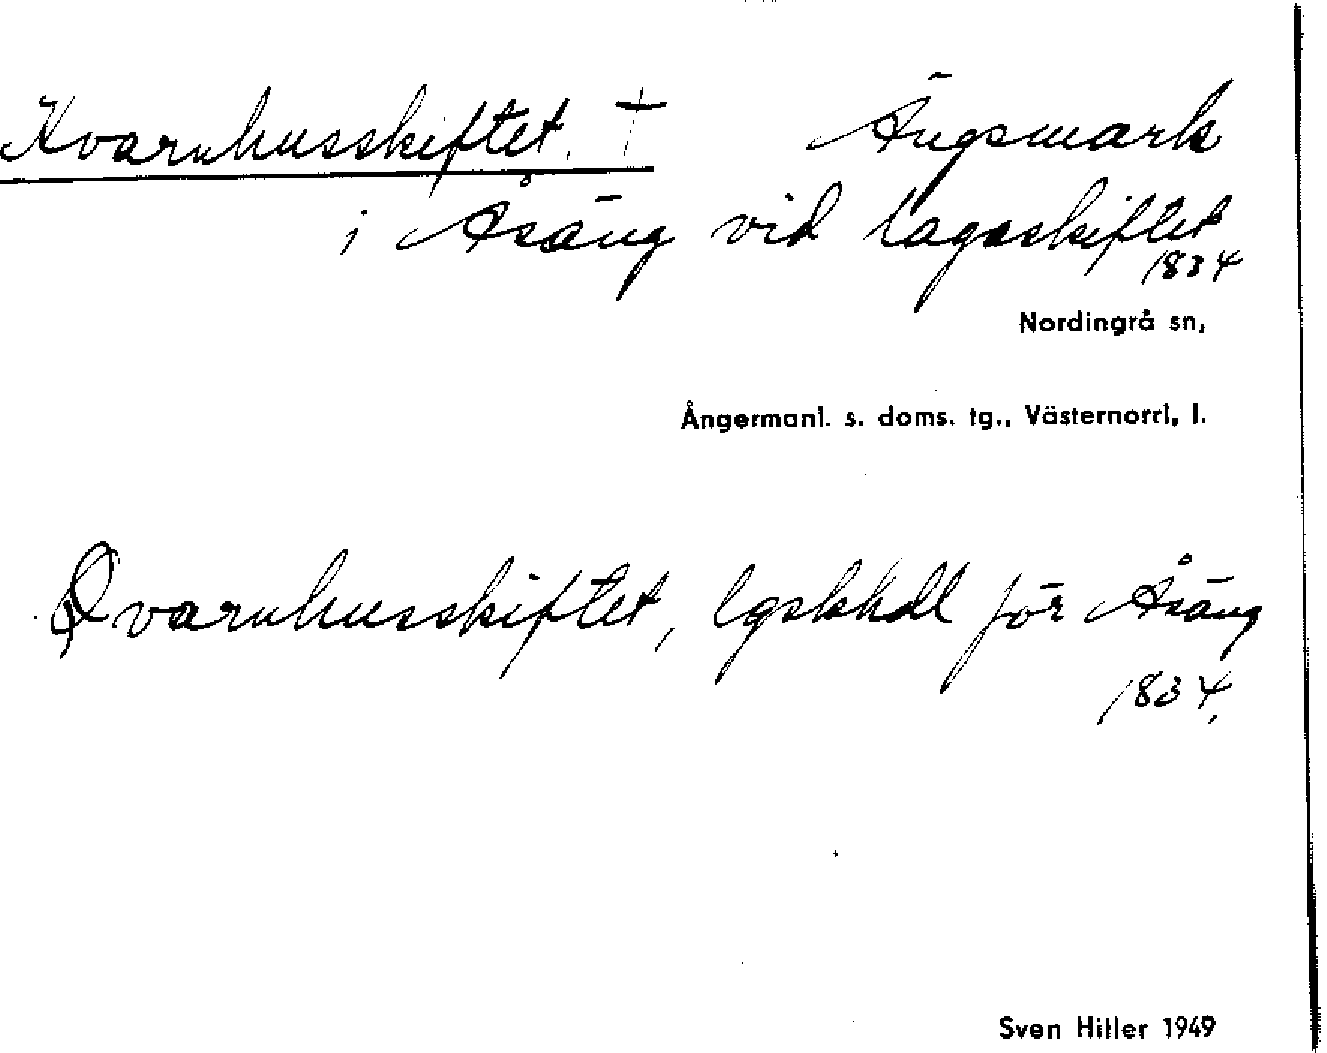 Kvarnhusskiftet. † Ängsmark
i Åsäng vid lagaskiftet
1834
Nordingrå sn,
Ångermanl. s. doms. tg., Västernorrl, l.
Qvarnhusskiftet, lgskhdl för Åsäng
1834,
Sven Hiller 1949